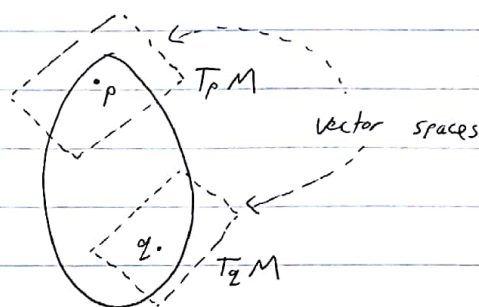 p
TₚM
vector spaces
q
T_qM